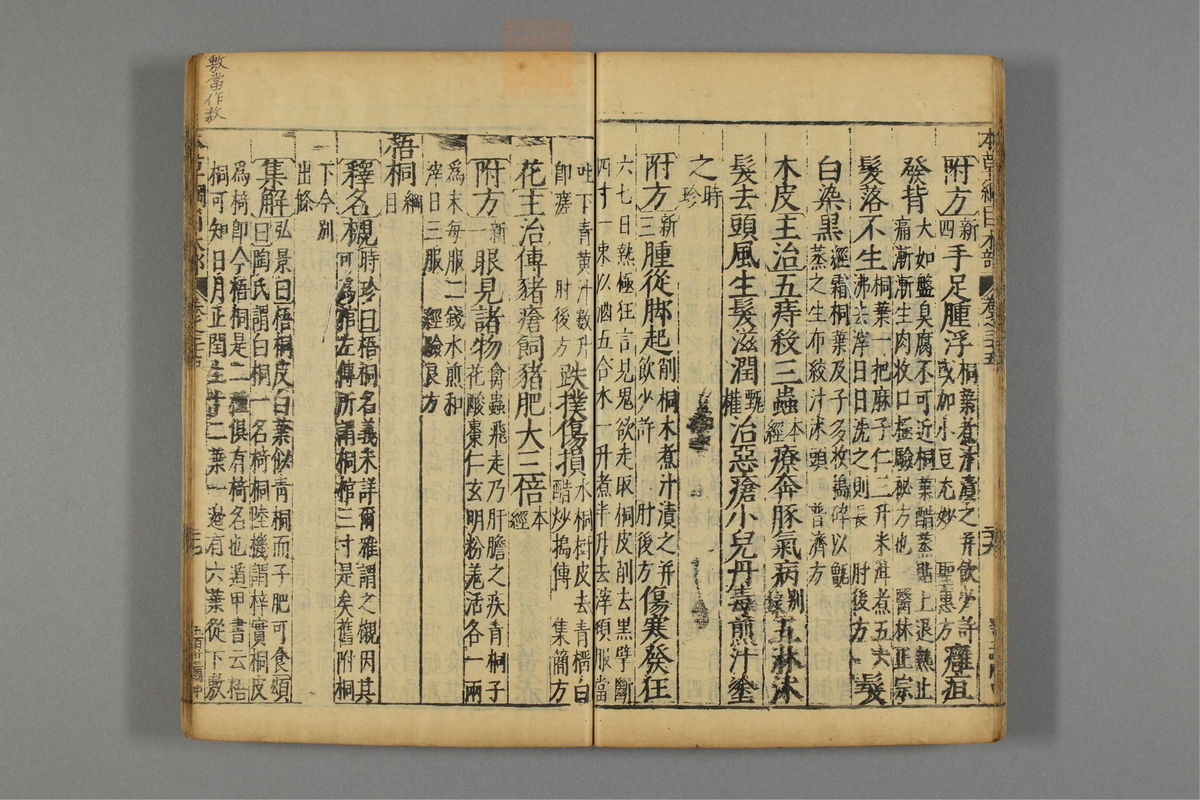 本草綱目木部
卷之三十五
附方新四手足腫浮桐葉煮汁漬之并飲少許或加小豆尤妙 聖惠方癰疽
發背大如盤臭腐不可近桐葉醋蒸貼上退熱止痛漸漸生肉收口極驗秘方也 醫林正宗
髮落不生桐葉一把麻子仁三升米泔煮五六沸去滓日日洗之則長 肘後方髮
白染黑經霜桐葉及子多收搗碎以甑蒸之生布絞汁沐頭 普濟方
木皮主治五痔殺三蟲本經療奔豚氣病別錄五淋沐
髮去頭風生髮滋潤甄權治惡瘡小兒丹毒煎汁塗
之時珍
附方新三腫從脚起削桐木煮汁漬之并飲少許 肘後方傷寒發狂
六七日熱極狂言見鬼欲走取桐皮削去黑擘斷四寸一束以酒五合水一升煮半升去滓頓服當
吐下青黄汁數升即瘥 肘後方跌撲傷損水桐樹皮去青留白醋炒搗傅 集簡方
花主治傅豬瘡飼豬肥大三倍本經
附方新一眼見諸物禽蟲飛走乃肝膽之疾青桐子花酸棗仁玄明粉羌活各一兩
爲末每服二錢水煎和滓日三服 經驗良方
梧桐綱目
釋名櫬時珍曰梧桐名義未詳爾雅謂之櫬因其木可爲棺左傳所謂桐棺三寸是矣舊附桐
下今別出條
集解弘景曰梧桐皮白葉似青桐而子肥可食頌曰陶氏謂白桐一名椅桐陸機謂梓實桐皮
爲椅即今梧桐是二種俱有椅名也遁甲書云梧桐可知日月正閏生十二葉一邊有六葉從下敷
敷當作数